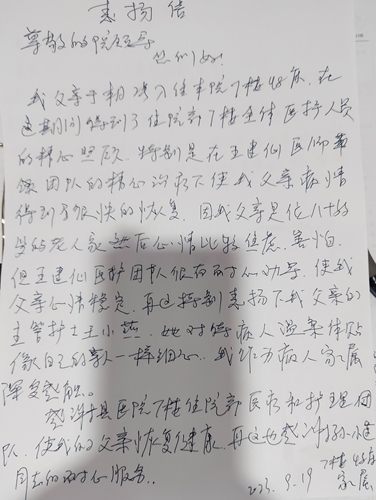 表扬信
尊敬的院领导
您们好!
我父亲于 入住本院7楼48床, 在
这期间得到了住院部7楼全体医护人员
的精心照顾. 特别是在王建仙医师带
领团队的精心治疗下使我父亲病情
得到了很快的恢复. 因我父亲是位八十的
老人家 后心情比较焦虑. 害怕.
但王建仙医护团队很有耐心劝导, 使我
父亲心情稳定. 再这特别表扬下我父亲的
主管护士王小燕. 她对待病人温柔体贴
像自己的亲人一样细心. 我作为病人家属
深受感触.
感谢县医院7楼住院部医疗和护理团
队. 使我的父亲恢复健康. 再这也感谢
同志的耐心服务..
7楼48床
家属
9.19